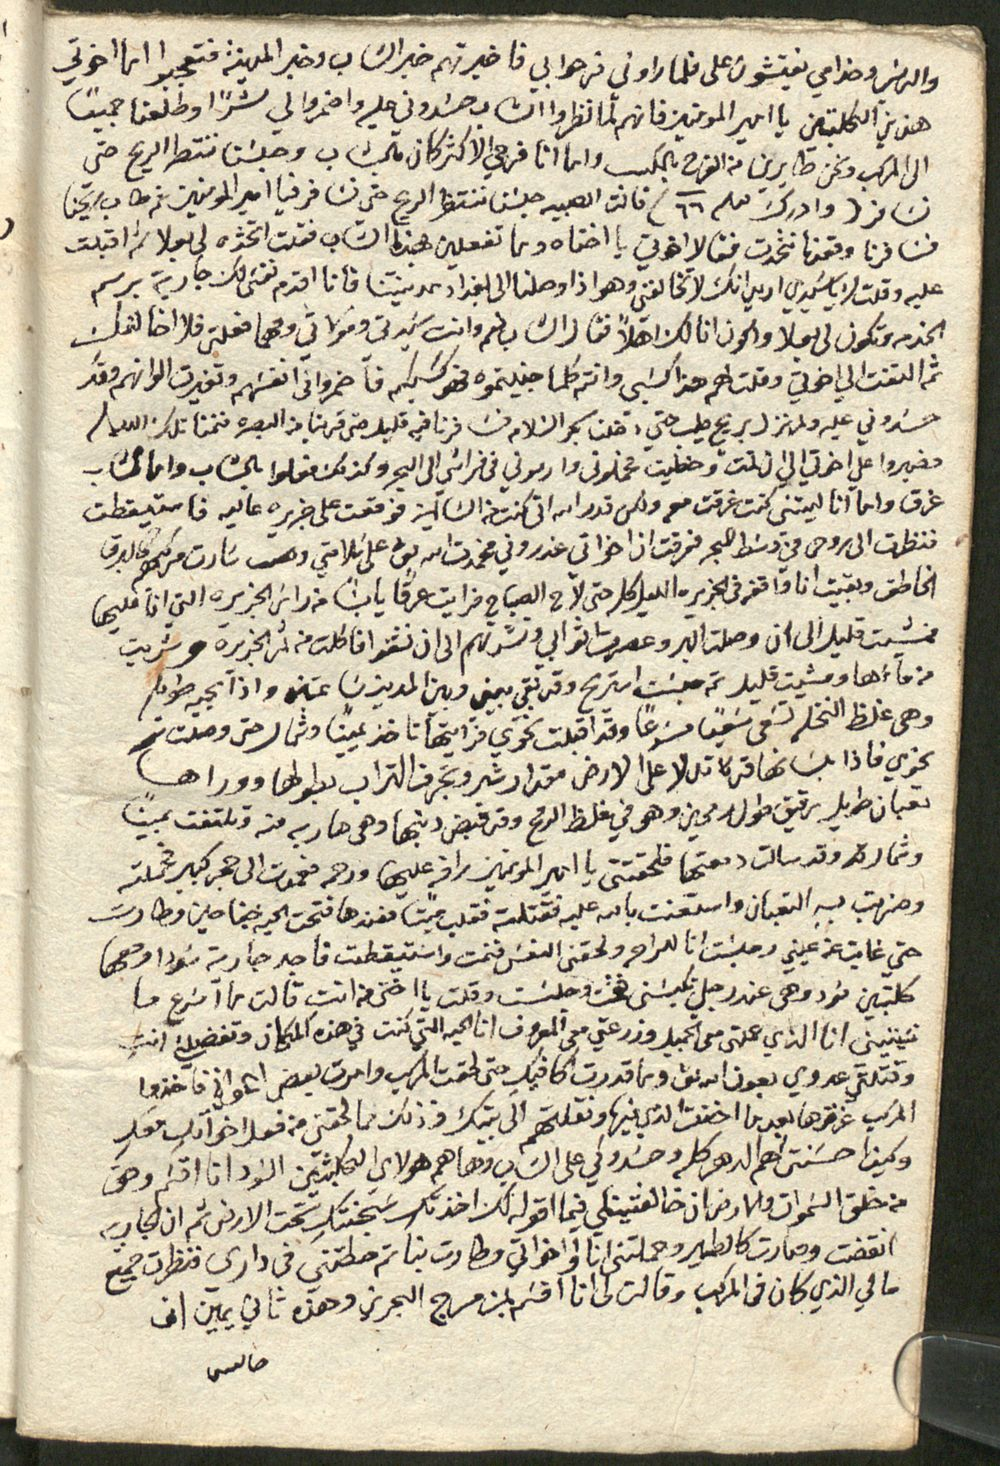 والريس وخدامي يفتشون علي فلما راوني فرحوا بي فاخبرتهم خبر الشاب وخبر المدينة فتعجبوا اما اخوتي
هذين الكلبتين يا امير المومنين فانهم لما نظروا الشاب حسدوني عليه واضمروا لي شرًا وطلعنا جميعًا
الى المركب ونحن طايرين من الفرح بالمكسب واما انا فرحي الاكثر كان بالشاب وجلسنا ننتظر الريح حتى
نسافر وادرك ٦٦ قالت الصبيه جلسنا ننتظر الريح حتى نسافر يا امير المومنين ثم طاب ريحنا
فسافرنا وقعدنا نتحدث فقالا اخوتي يا اختاه وما تفعلين بهذا الشاب فقلت اتخذه لي بعلا ثم اقبلت
عليه وقلت له يا سيدي اريد انك لا تخالفني وهو اذا وصلنا الى بغداد مدينتنا فانا اقدم نفسي لك جارية برسم
الخدمه وتكون لي بعلا واكون انا لك اهلاً فقال الشاب نعم وانت سيدتي ومولاتي ومهما فعلتي فلا اخالفك
ثم التفت الى اخوتي وقلت لهم هذا كسبي وانتم كلما جبتموه فهو كسبكم فاضمروا في انفسهم وتغيرت الوانهم وقد
حسدوني عليه ولم نزل بريح طيب حتى دخلنا بحر السلامه فسافرنا فيه قليلا حتى قربنا من البصره فنمنا تلك الليله
فصبروا علي اخوتي الى ان نمت وغطيت فحملوني وارموني في فراشي الى البحر وكذلك فعلوا بالشاب واما الشاب
غرق واما انا ليتني كنت غرقت معه ولكن قدر الله اني كنت من السالمين فوقعت على جزيره عاليه فاستيقظت
فنظرت الى روحي في وسط البحر فعرفت ان اخواتي غدروني فحمدت الله تعالى على سلامتي وقد سارت مركبهم كالبرق
الخاطف وبقيت انا واقفه في الجزيره الليل كله حتى لاح الصباح فرايت عرقًا يابسًا من راس الجزيره التي انا عليها
فمشيت قليلا الى ان وصلت البر وعصرت اثوابي ونشرتهم الى ان نشفوا فاكلت من ثمر الجزيره وشربت
من ماءها ومشيت قليلا ثم جلست استريح وقد بقي بيني وبين المدينه ساعتين واذا بحيه طويله
وهي غلظ النخله تسعى سعيًا مسرعًا وقد اقبلت نحوي فرايتها تاخذ يمينًا وشمالا حتى وصلت
نحوي فاذا بلسانها قد تدلا على الارض مقدار شبر وتجرف التراب بطولها ووراها
تعبان طويل رقيق طول رمحين وهو في غلظ الرمح وقد قبض ذنبها وهي هاربه منه وتلتفت يمينًا
وشمالا وقد سالت دمعتها فلحقتني يا امير المومنين رافه عليها ورحمه فعمدت الى حجر كبير فحملته
وضربت به التعبان واستعنت بالله عليه فقتلته فقلب ميتًا فعندها فتحت الحيه جناحين وطارت
حتى غابت عن عيني وجلست انا للراحه ولحقني النعس فنمت واستيقظت فاجد جارية سودا ومعها
كلبتين سود وهي عند رجلي تكبسني فقمت وجلست وقلت يا اختي من انت قالت ما اسرع ما
نسيتيني انا الذي عملتي معي الجميل وزرعتي معي المعروف انا الحيه التي كنت في هذه المكان وتفضلت انت
وقتلتي عدوي بعون الله تعالى وما قدرت اكافيك حتى لحقت المركب وامرت بعض اعواني فاخذوا
المركب غرقوها بعد ما اخذت الذي فيها ونقلتهم الى بيتك وذلك مما لحقني من فعل اخواتك معك
وكيف احسنتي لهم الدهر كله وحسدوكي على الشاب وها هم هولاي الكلبتين السود انا اقسم وحق
من خلق السموات والارض ان خالفتيني فيما اقوله لك اخذتك سجنتك تحت الارض ثم ان الجاريه
انتفضت وصارت كالطير وحملتني انا واخواتي وطارت بنا ثم حطتني في داري فنظرت جميع
مالي الذي كان في المركب وقالت لي انا اقسم بمن مرج البحرين وهذه ثاني يمين ان
خالفتي